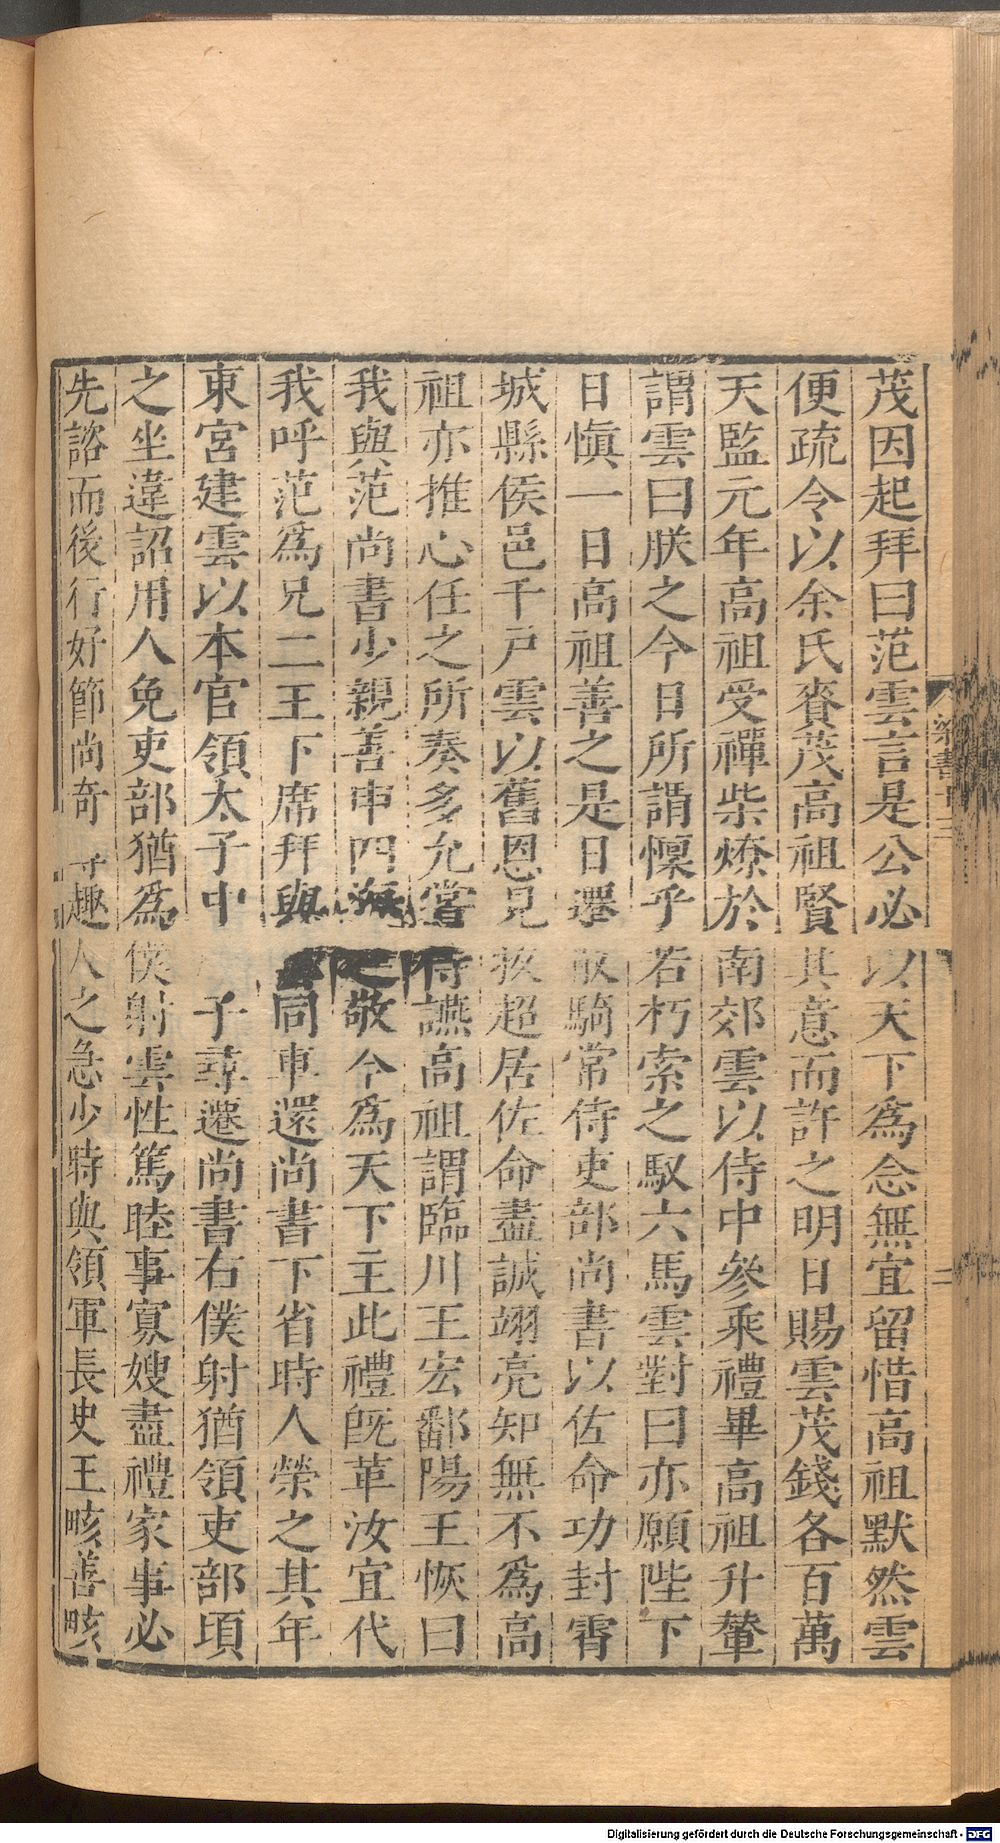 茂因起拜曰范雲言是公必以天下為念無宜留惜高祖默然雲
便疏令以余氏賚茂高祖賢其意而許之明日賜雲茂錢各百萬
天監元年高祖受禪柴燎於南郊雲以侍中參乘禮畢高祖升輦
謂雲曰朕之今日所謂懍乎若朽索之馭六馬雲對曰亦願陛下
日愼一日高祖善之是日遷散騎常侍吏部尚書以佐命功封霄
城縣侯邑千戶雲以舊恩見拔超居佐命盡誠翊亮知無不爲高
祖亦推心任之所奏多允嘗侍讌高祖謂臨川王宏鄱陽王恢曰
我與范尚書少親善申四海之敬今爲天下主此禮旣革汝宜代
我呼范爲兄二王下席拜與同車還尚書下省時人榮之其年
東宮建雲以本官領太子中 子尋遷尚書右僕射猶領吏部頃
之坐違詔用人免吏部猶爲僕射雲性篤睦事寡嫂盡禮家事必
先諮而後行好節尚奇 趣人之急少時與領軍長史王畡善畡
梁書十三
二
Digitalisierung gefördert durch die Deutsche Forschungsgemeinschaft - DFG